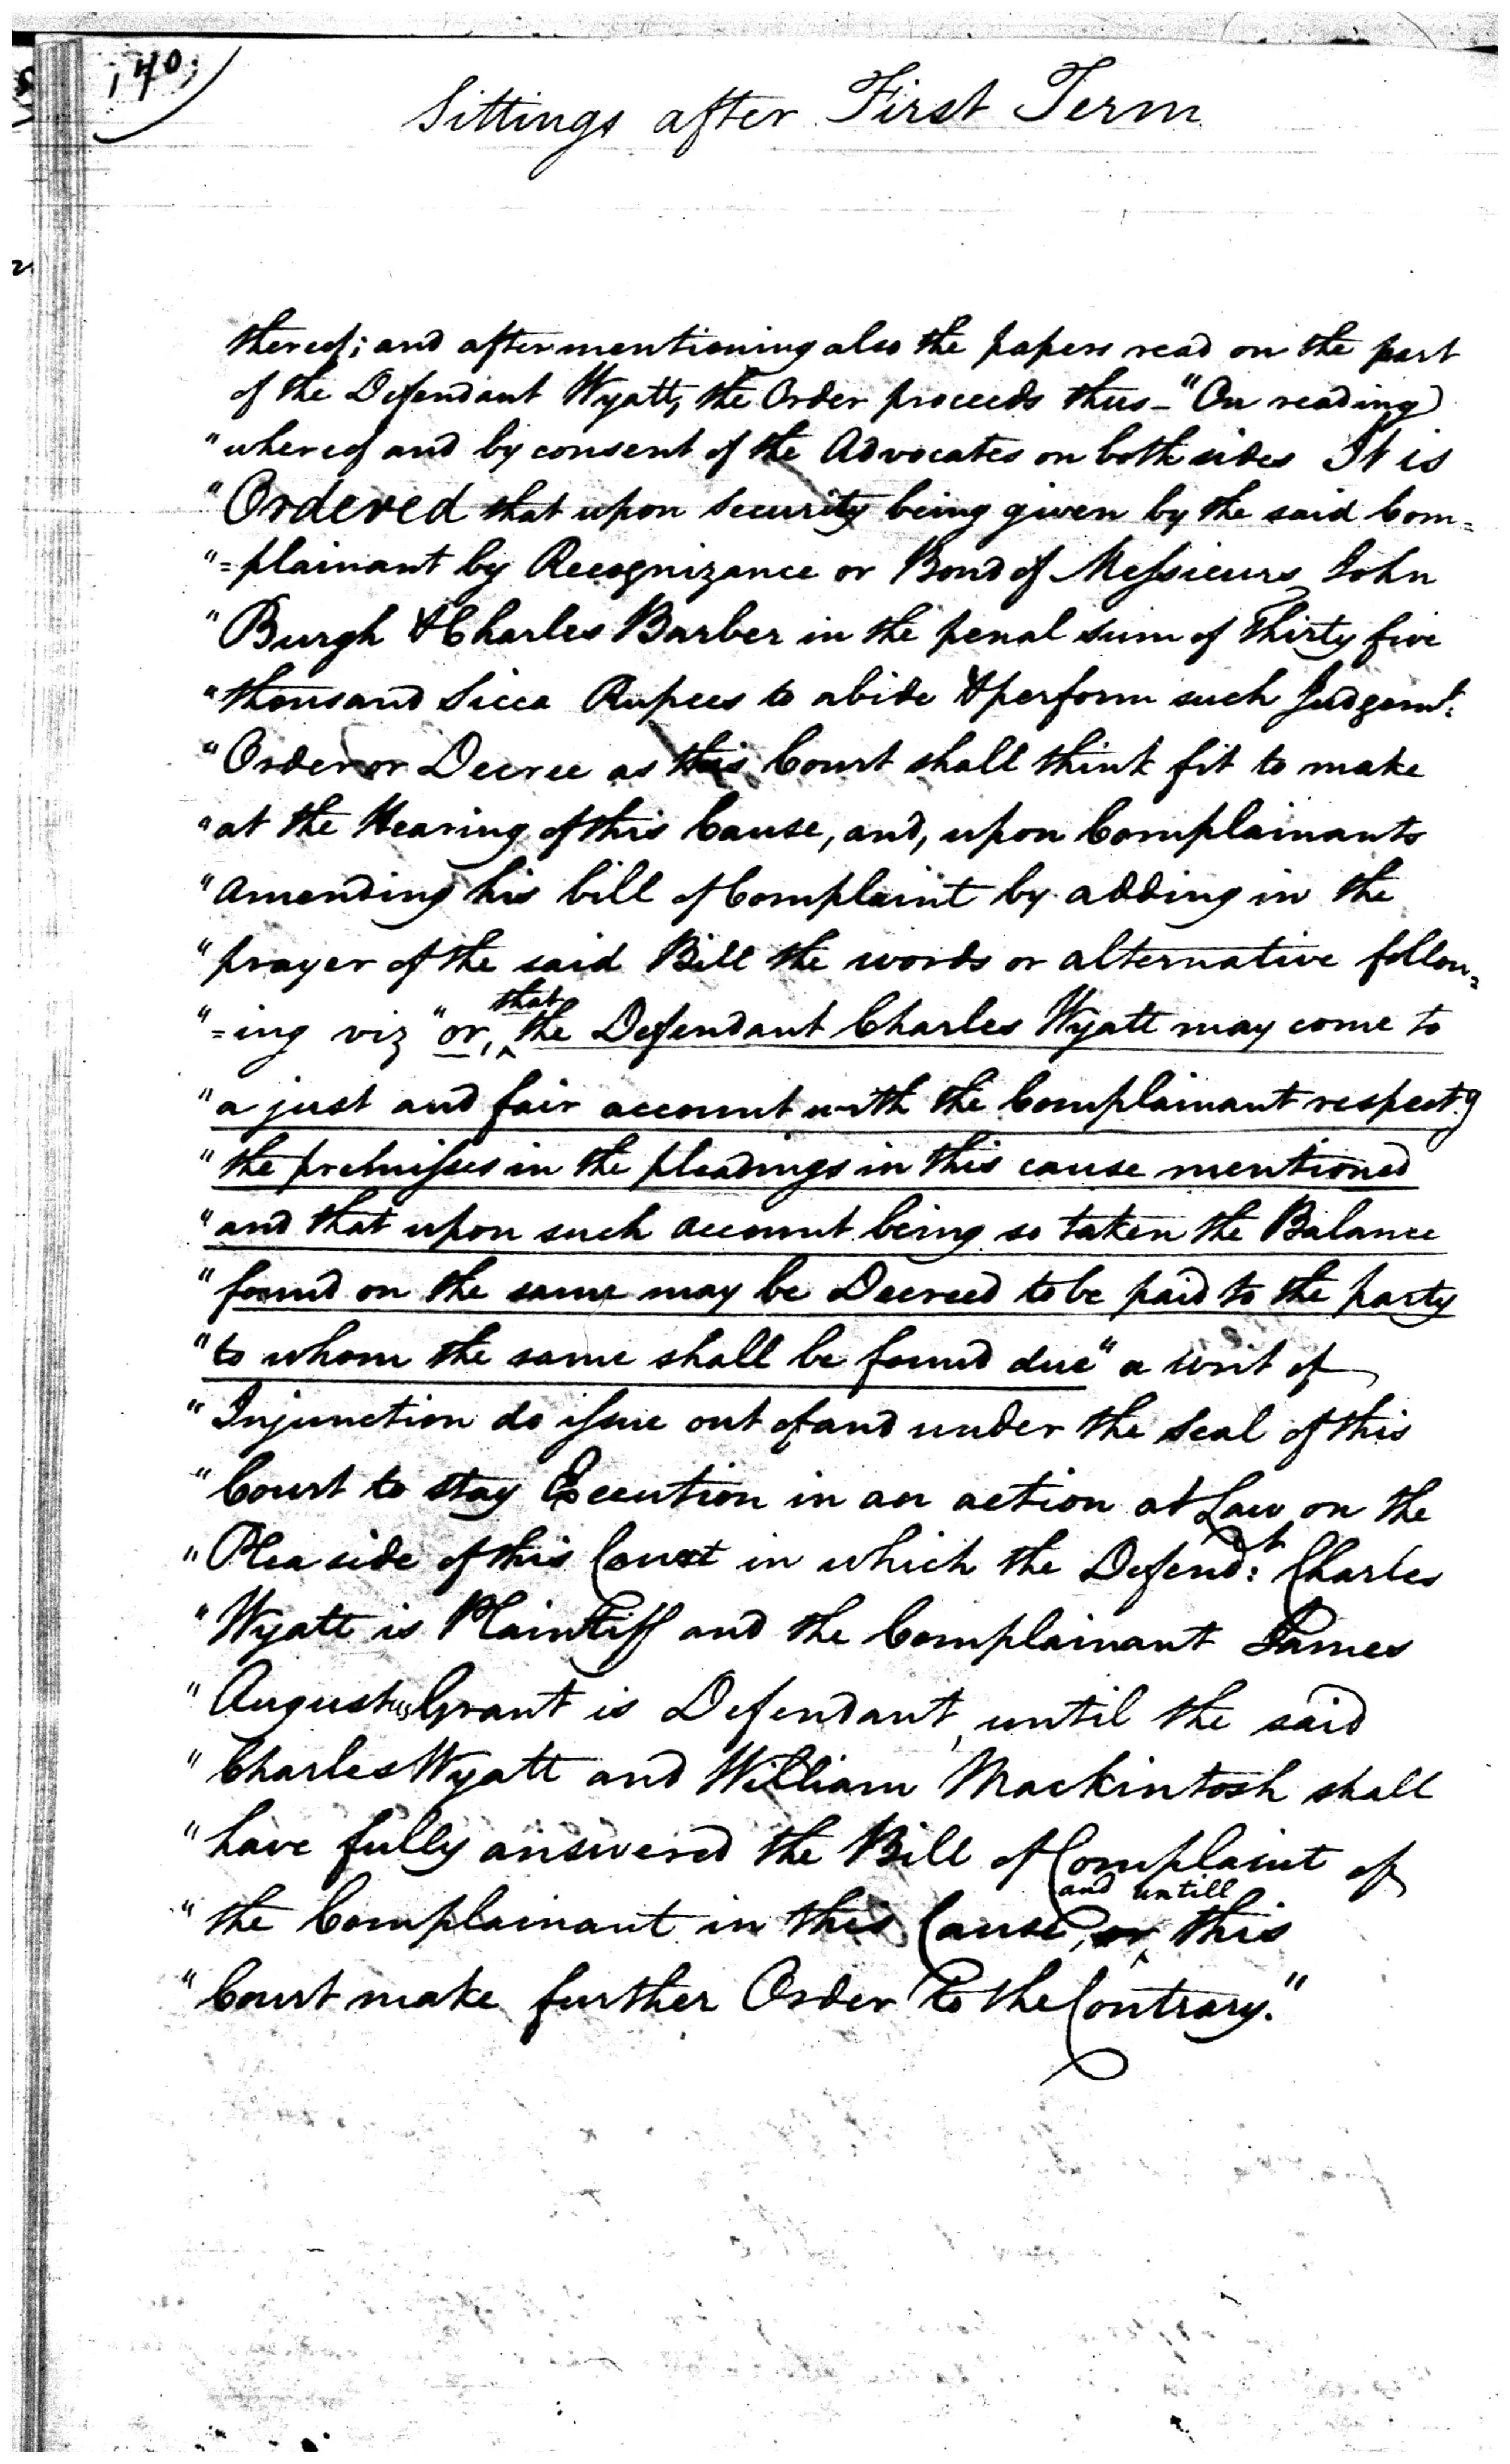 140;
Sittings after First Term
thereof; and after mentioning also the papers read on the part
of the Defendant Wyatt, the Order proceeds thus - "On reading
"whereof and by consent of the Advocates on both sides It is
"Ordered that upon Security being given by the said Com=
"=plainant by Recognizance or Bond of Messieurs John
"Burgh & Charles Barber in the penal sum of Thirty five
"thousand Sicca Rupees to abide & perform such Judgemt:
"Order or Decree as this Court shall think fit to make
"at the Hearing of this Cause, and, upon Complainants
"amending his bill of Complaint by adding in the
"prayer of the said Bill the words or alternative follow=
"=ing viz "or, that the Defendant Charles Wyatt may come to
"a just and fair account with the Complainant respectg
"the premisses in the pleadings in this cause mentioned
"and that upon such account being so taken the Balance
"found on the same may be Decreed to be paid to the party
"to whom the same shall be found due" a writ of
"Injunction do issue out of and under the Seal of this
"Court to stay Execution in an action at Law on the
"Plea side of this Court in which the Defendt: Charles
"Wyatt is Plaintiff and the Complainant James
"Augustus Grant is Defendant, until the said
"Charles Wyatt and William Mackintosh shall
"have fully answered the Bill of Complaint of
"the Complainant in this Cause, or and untill this
"Court make further Order to the Contrary."